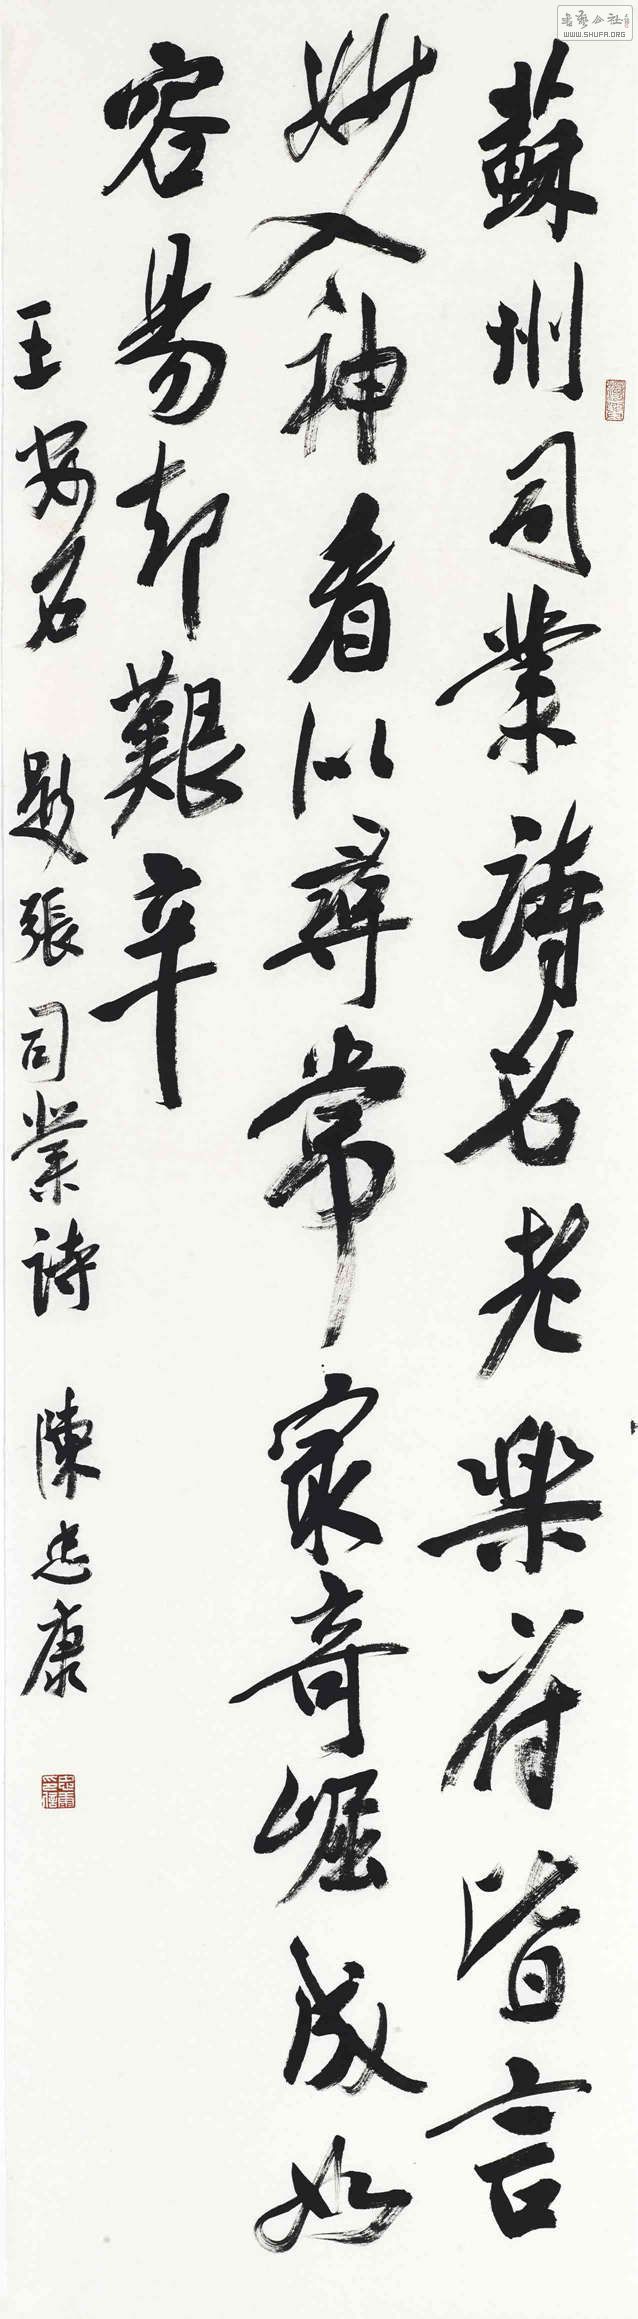 蘇州司業詩名老樂府皆言
妙入神看似尋常最奇崛成如
容易却艱辛
王安石 題張司業詩 陳忠康
忠康印信
書藝公社
WWW.SHUFA.ORG